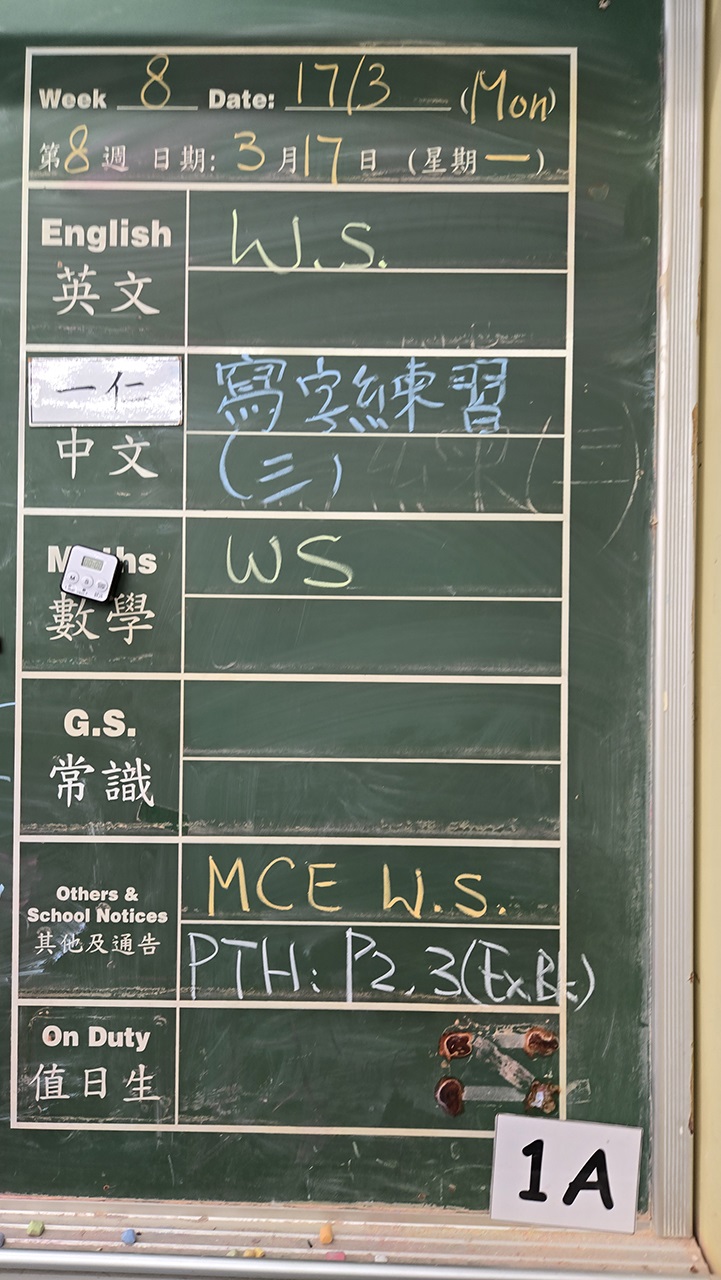 Week 8 Date: 17/3 (Mon)
第8週 日期: 3月17日 (星期一)
English
英文
W.S.
一仁
中文
寫字練習
(三)
Maths
數學
WS
G.S.
常識
Others &
School Notices
其他及通告
MCE W.S.
PTH: P2,3(Ex.Bk)
On Duty
值日生
1A